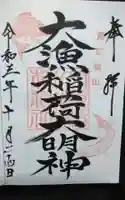 奉拝
大漁稲荷大明神
令和三年十月二十四日